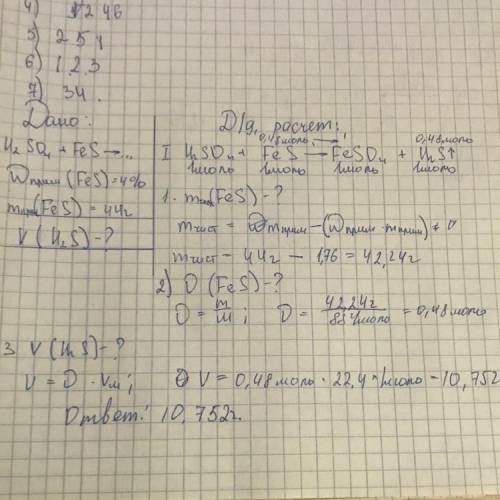 4) 1246
5) 251
6) 1.2.3
7) 34.
Дано:
H₂SO₄ + FeS →...
Wприм(FeS) = 4%
m(FeS) = 44г
V(H₂S) - ?
Д/д, расчет:
0,48моль 0,48моль
I H₂SO₄ + FeS → FeSO₄ + H₂S↑
1моль 1моль 1моль 1моль
1. m(FeS) - ?
mчист = mприм - (Wприм · mприм) =
mчист - 44г - 1,76 = 42,24г
2) υ (FeS) - ?
υ = m/M; υ = 42,24г/88г/моль = 0,48моль
3 V(H₂S) - ?
V = υ · Vм; V = 0,48моль · 22,4 /моль = 10,752
Ответ: 10,752г.